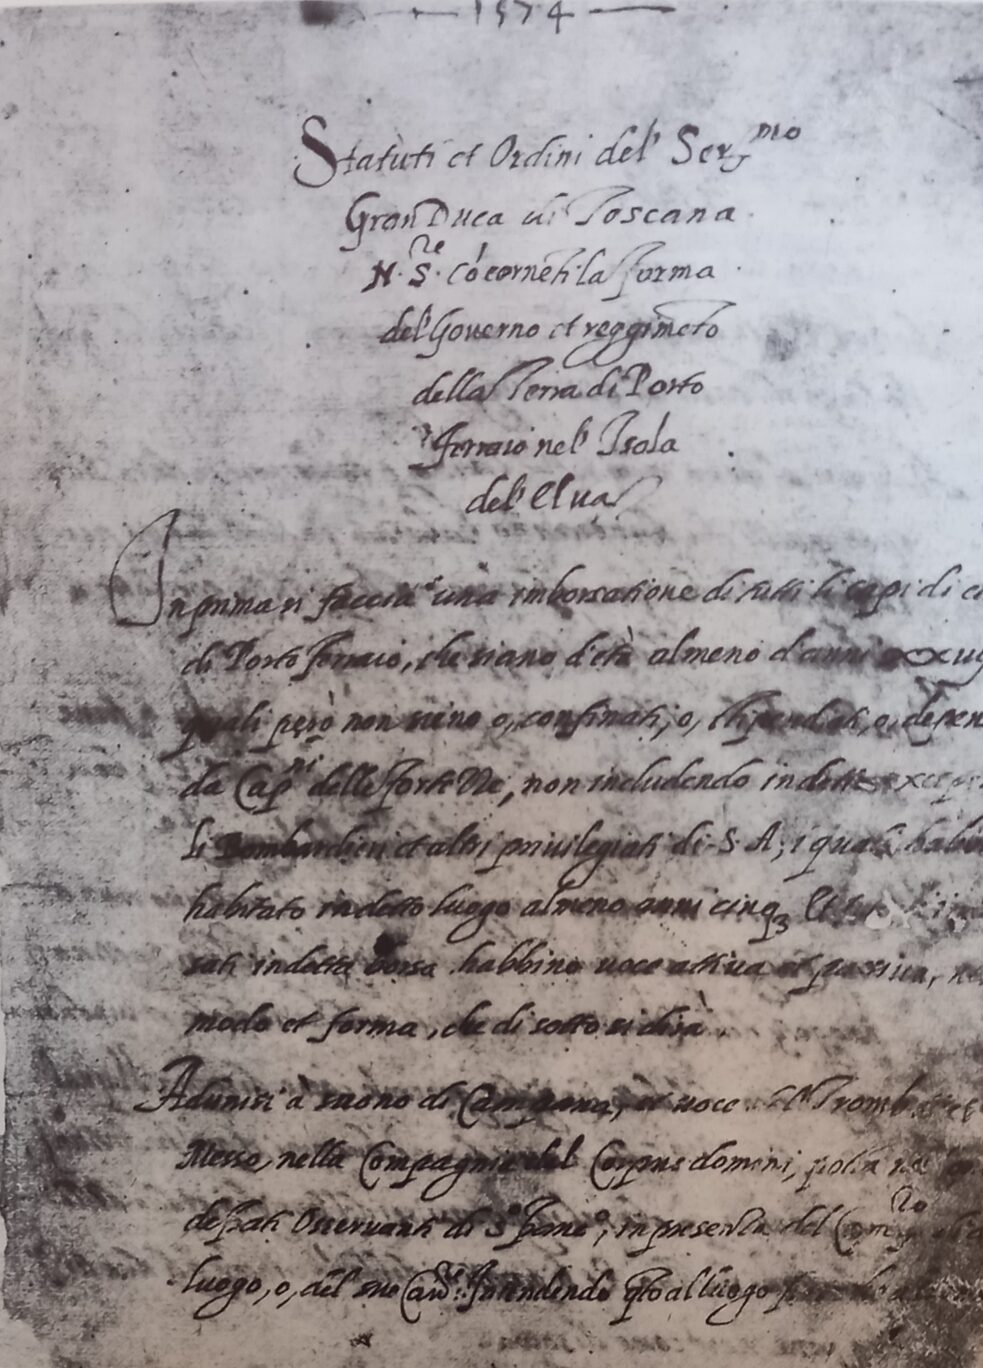 1574
Statuti et Ordini del Ser.mo
Gran Duca di Toscana
N. S.re cōcernēti la forma
del Governo et reggimēto
della Terra di Porto
ferraio nel Isola
del' Elva
In prima si faccia una imborsatione di tutti li capi di
di Porto ferraio, che siano d'età almeno d'anni
quali però non sieno o, confinati, o, stipendiati, o,
da Cap.ni delle forteze, non includendo in dette
li Bombardieri et altri privilegiati di S. A; i quali
habitato in detto luogo almeno anni cinq3 Et
sati in detta borsa habbino voce attiva et passiva,
modo et forma, che di sotto si dirà
Adunisi à suono di Campana, et voce
Messo, nella Compagnia del Corpus domini,
de frati Osservanti di S.o franc.o, in presenza del
luogo, o, del suo intendendo qto al luogo